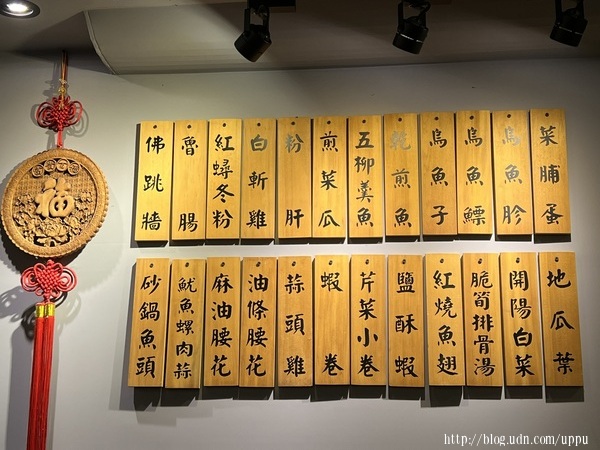 菜脯蛋
烏魚胗
烏魚鰾
烏魚子
乾煎魚
五柳羹魚
煎菜瓜
粉肝
白斬雞
紅蟳冬粉
魯腸
佛跳牆
地瓜葉
開陽白菜
脆筍排骨湯
紅燒魚翅
鹽酥蝦
芹菜小卷
蝦卷
蒜頭雞
油條腰花
麻油腰花
魷魚螺肉蒜
砂鍋魚頭
福
http://blog.udn.com/uppu